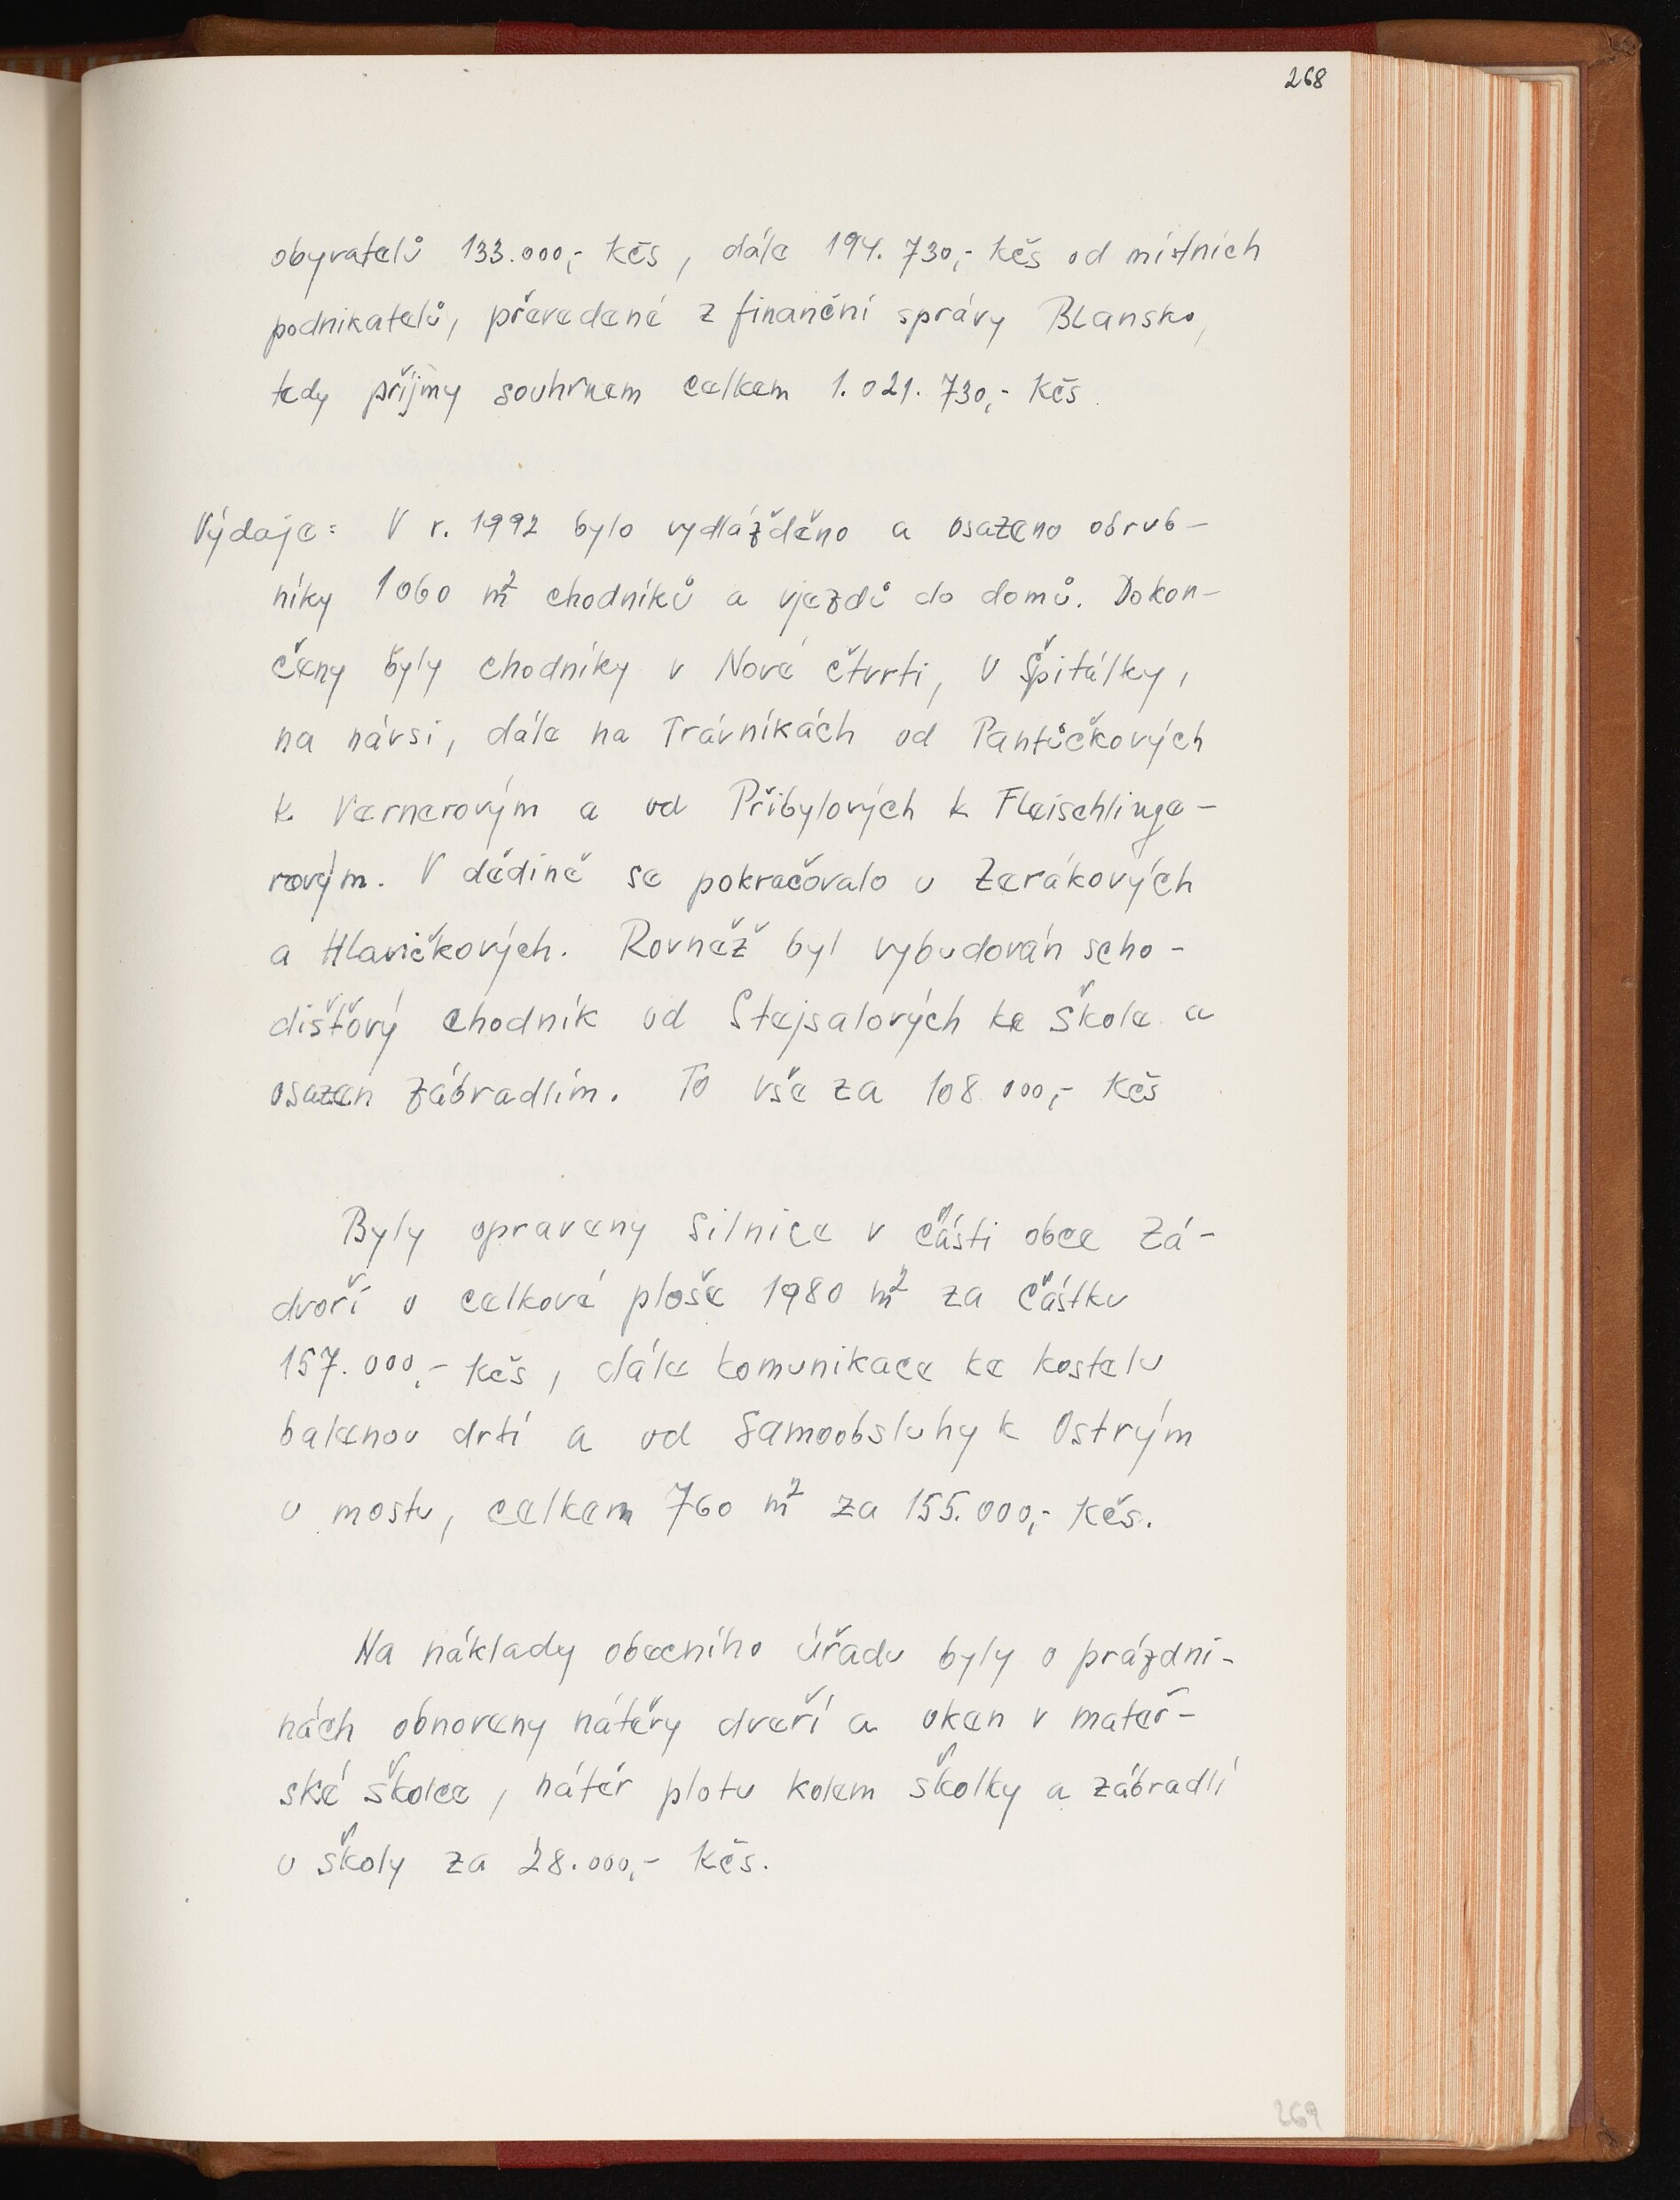 268
obyvatelů 133.000,- Kčs, dále 194.730,- Kčs od místních
podnikatelů, převedené z finanční správy Blansko,
tedy příjmy souhrnem celkem 1.021.730,- Kčs.
Výdaje: V r. 1992 bylo vydlážděno a osazeno obrub-
níky 1060 m² chodníků a vjezdů do domů. Dokon-
čeny byly chodníky v Nové čtvrti, U Špitálky,
na návsi, dále na Trávníkách od Pantůčkových
k Vernerovým a od Přibylových k Fleischlinge-
rovým. V dědině se pokračovalo u Zerákových
a Hlavičkových. Rovněž byl vybudován scho-
dišťový chodník od Stejsalových ke škole a
osazen zábradlím. To vše za 108 000,- Kčs
Byly opraveny silnice v části obce Zá-
dvoří o celkové ploše 1980 m² za částku
157.000,- Kčs, dále komunikace ke kostelu
balenou drtí a od Samoobsluhy k Ostrým
u mostu, celkem 760 m² za 155.000,- Kčs.
Na náklady obecního úřadu byly o prázdni-
nách obnoveny nátěry dveří a oken v mateř-
ské školce, nátěr plotu kolem školky a zábradlí
u školy za 28.000,- Kčs.
269